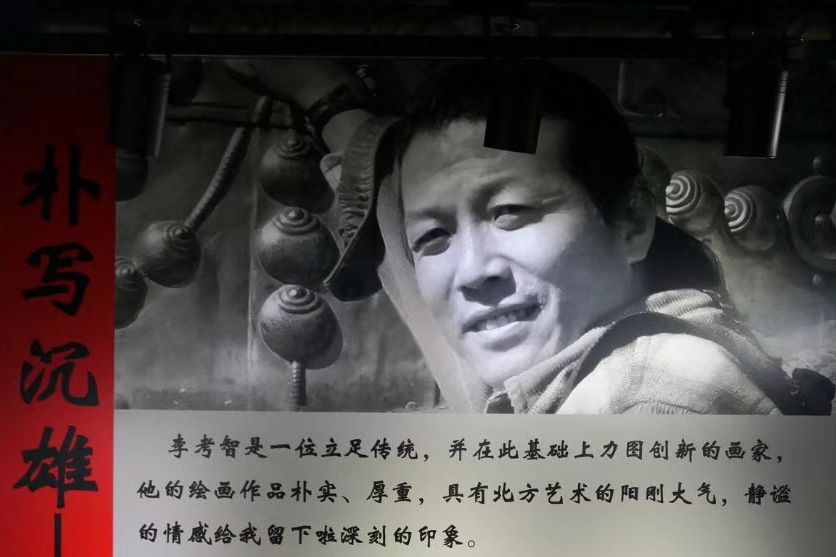 朴写沉雄—
李考智是一位立足传统，并在此基础上力图创新的画家，
他的绘画作品朴实、厚重，具有北方艺术的阳刚大气，静谧
的情感给我留下啦深刻的印象。